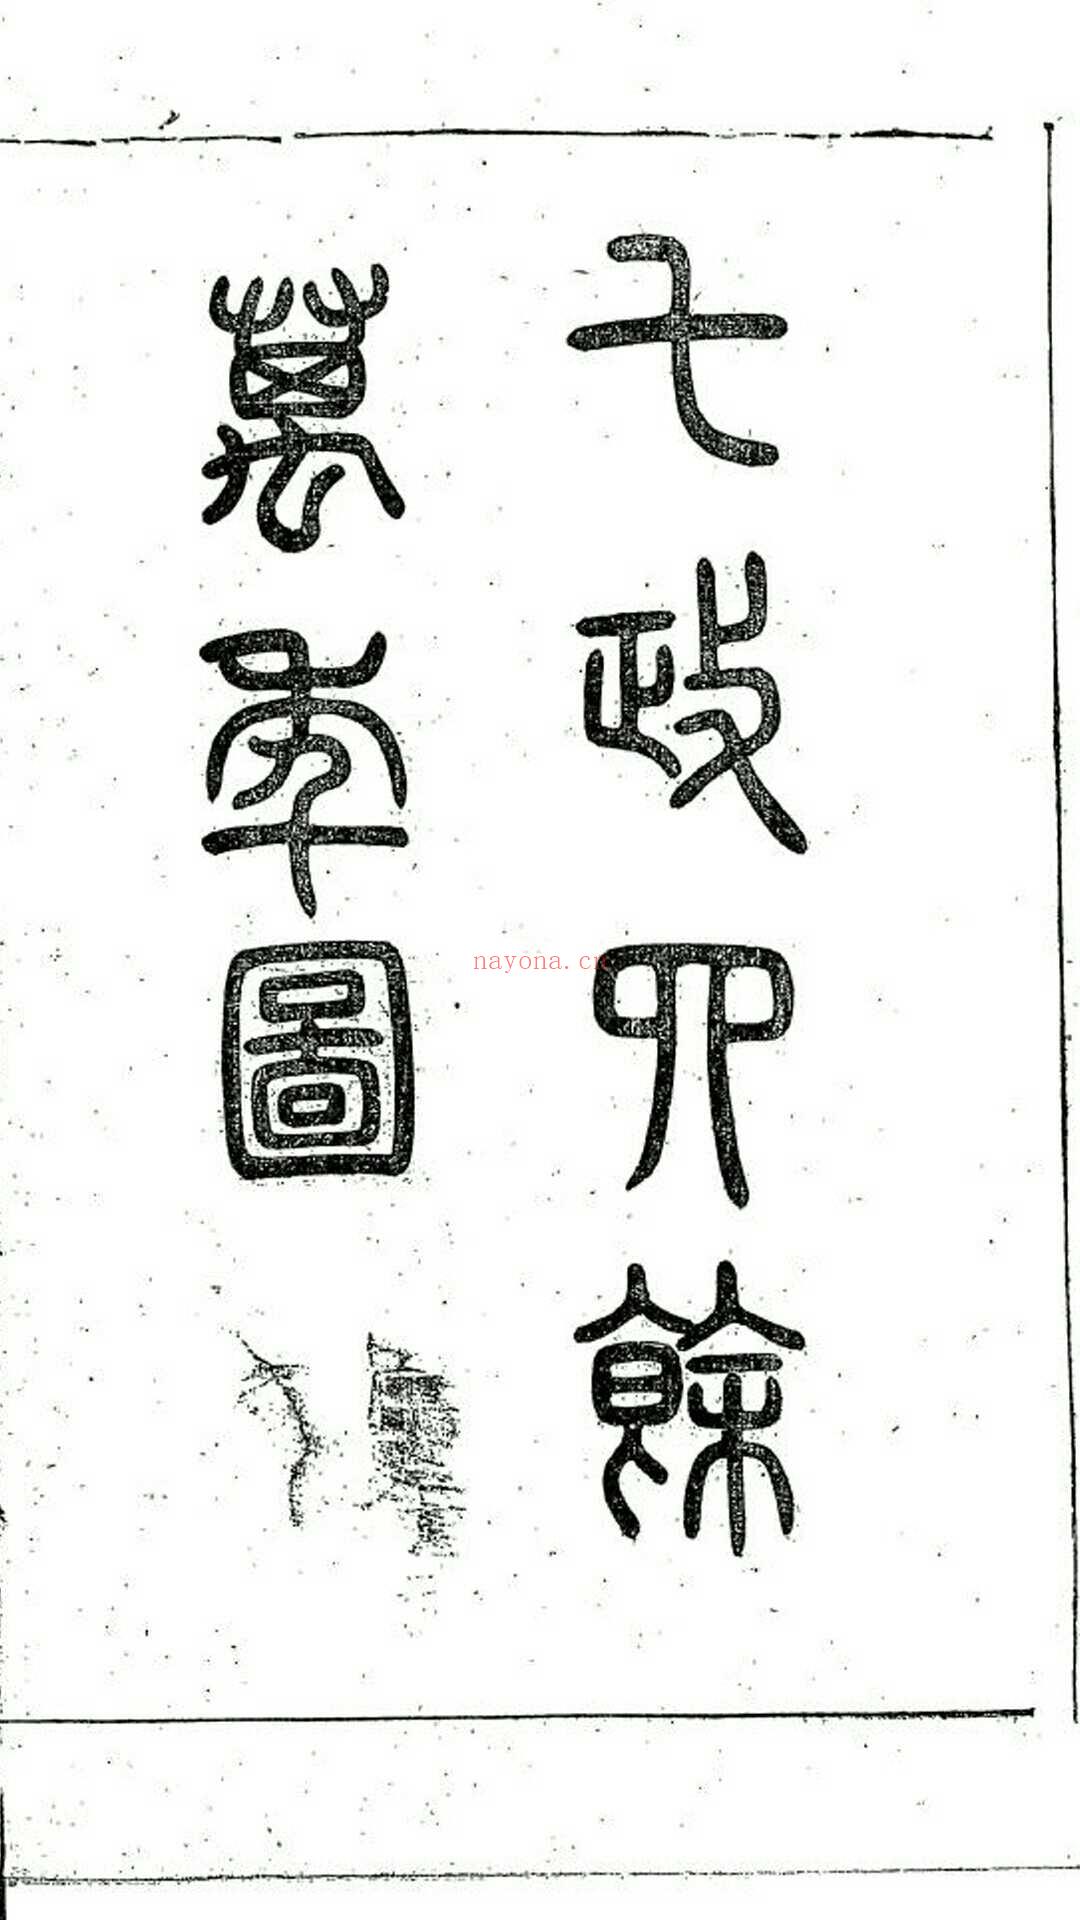 七政四餘
萬年圖
nayona.cn